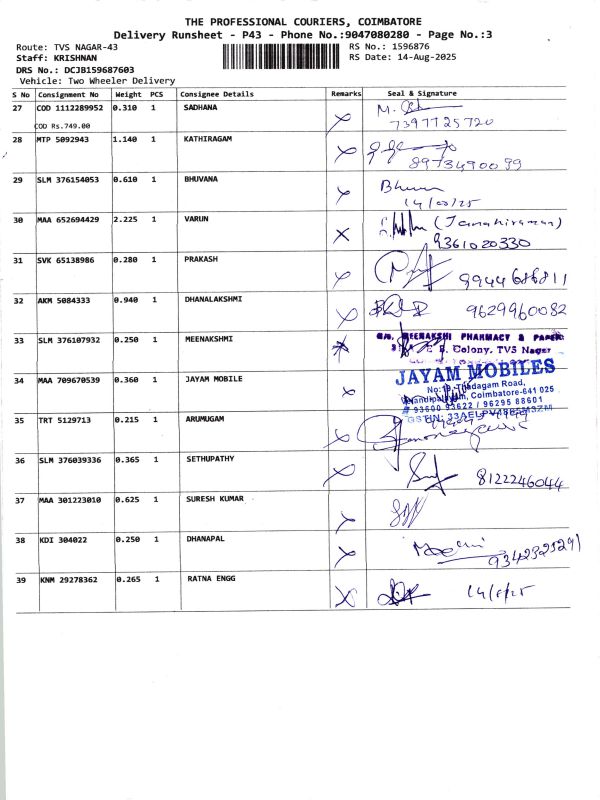 THE PROFESSIONAL COURIERS, COIMBATORE
Delivery Runsheet - P43 - Phone No.:9047080280 - Page No.:3
Route: TVS NAGAR-43
RS No.: 1596876
Staff: KRISHNAN
RS Date: 14-Aug-2025
DRS No.: DCJB159687603
Vehicle: Two Wheeler Delivery
S No Consignment No Weight PCS Consignee Details Remarks Seal & Signature
27 COD 1112289952 0.310 1 SADHANA
7397725720
COD Rs.749.00
28 MTP 5092943 1.140 1 KATHIRAGAM
8973490099
29 SLM 376154053 0.610 1 BHUVANA
14/08/25
30 MAA 652694429 2.225 1 VARUN
9361020330
31 SVK 65138986 0.280 1 PRAKASH
9944686811
32 AKM 5084333 0.940 1 DHANALAKSHMI 9629960082
33 SLM 376107932 0.250 1 MEENAKSHMI
MEENAKSHI PHARMACY & PAPER
Colony, TVS Nagar
34 MAA 709670539 0.360 1 JAYAM MOBILE
JAYAM MOBILES
Thadagam Road,
Coimbatore-641 025
93600 93622 / 96295 88601
35 TRT 5129713 0.215 1 ARUMUGAM
36 SLM 376039336 0.365 1 SETHUPATHY
8122246044
37 MAA 301223010 0.625 1 SURESH KUMAR
38 KDI 304022 0.250 1 DHANAPAL
9342325291
39 KNM 29278362 0.265 1 RATNA ENGG
14/8/25